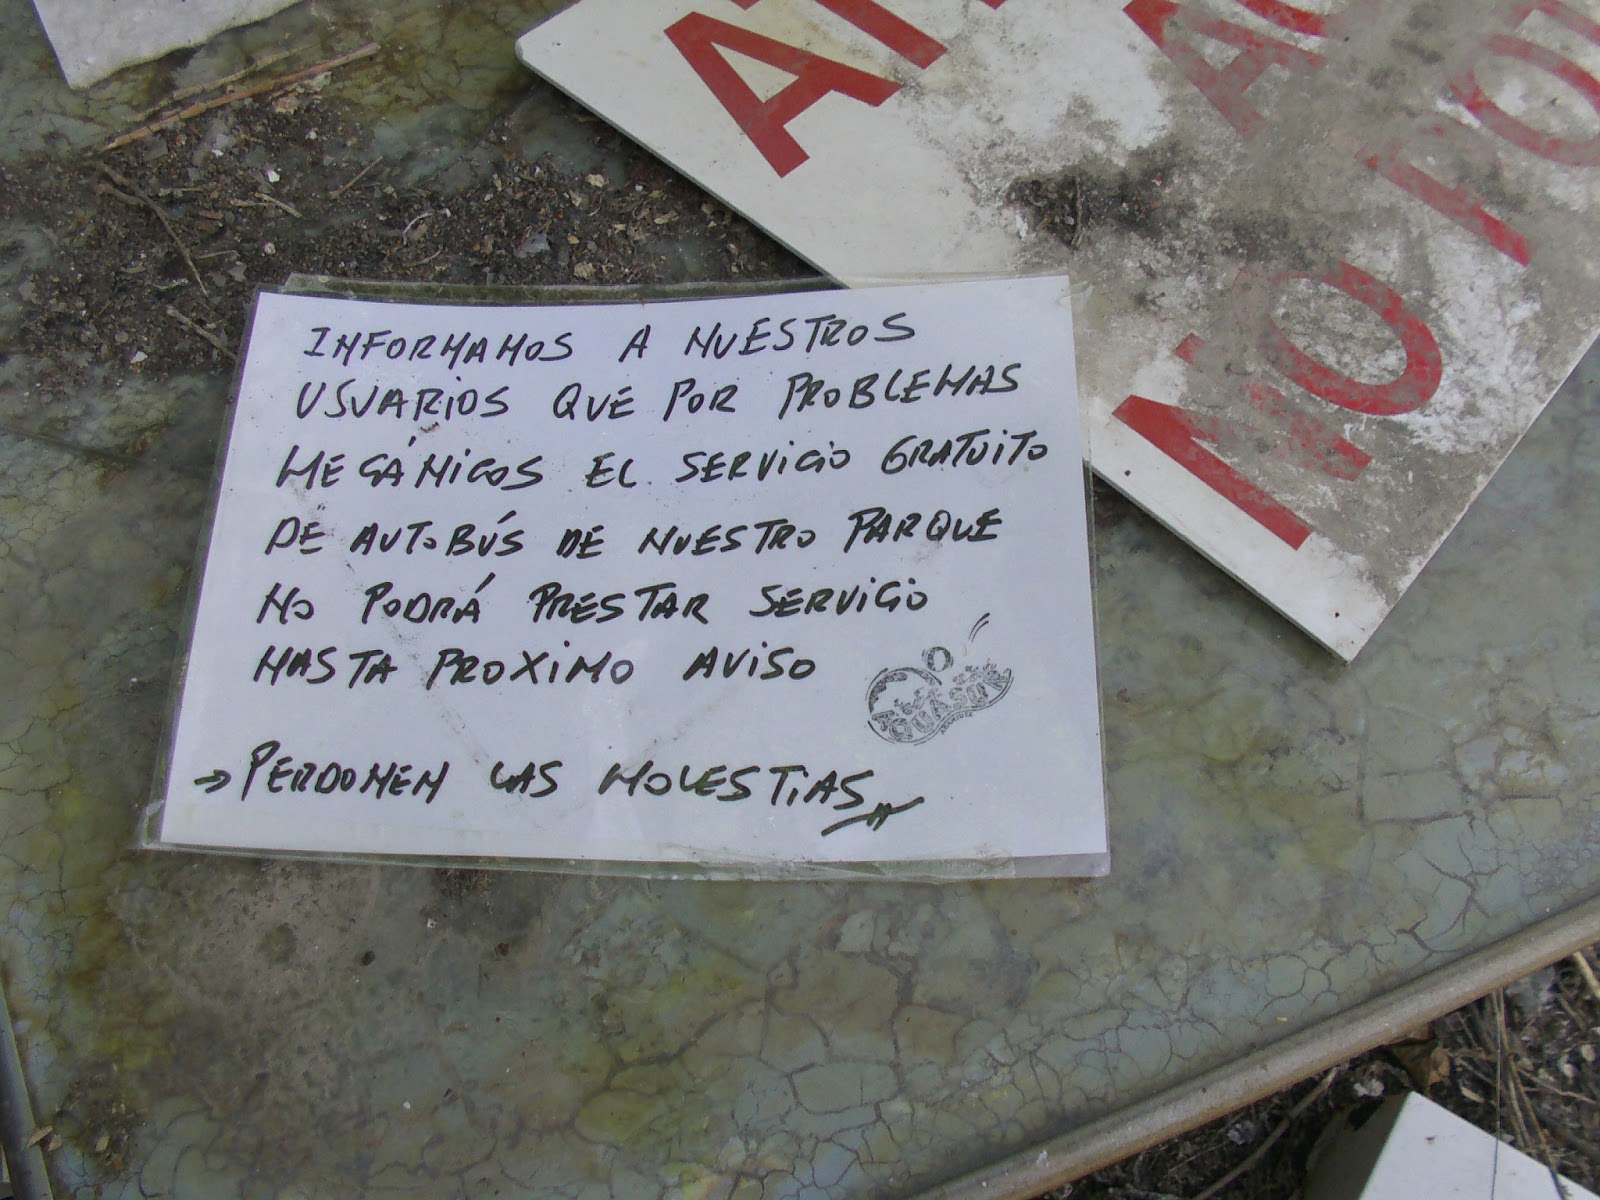 INFORMAMOS A NUESTROS
USUARIOS QUE POR PROBLEMAS
MECÁNICOS EL SERVICIO GRATUITO
DE AUTOBÚS DE NUESTRO PARQUE
NO PODRÁ PRESTAR SERVICIO
HASTA PROXIMO AVISO
AQUASUR
→ PERDONEN LAS MOLESTIAS
NO